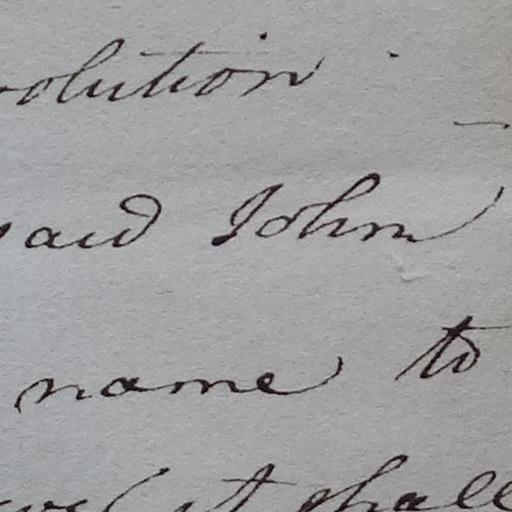 olution
said John
name to
it shall